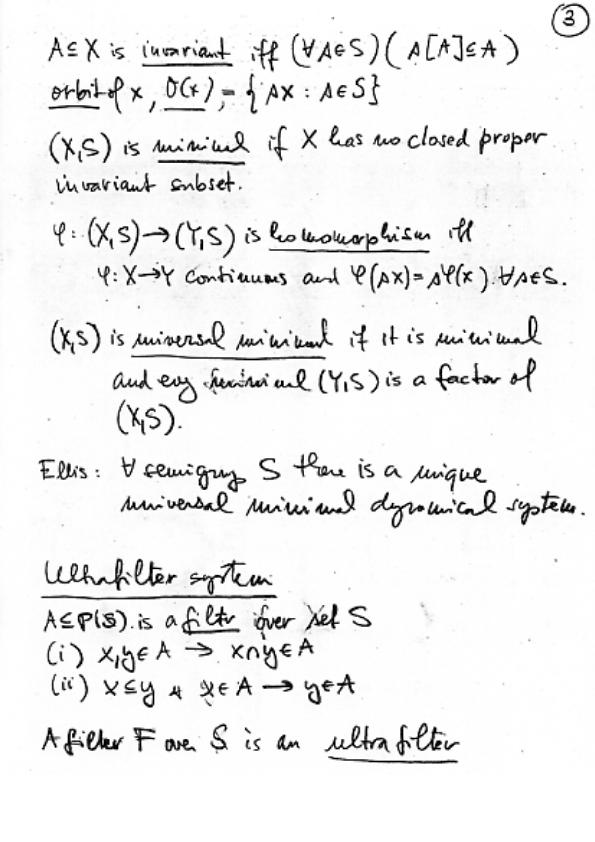 3
A⊆X is invariant iff (∀s∈S)(s[A]⊆A)
orbit of x, O(x) = {sx : s∈S}
(X,S) is minimal if X has no closed proper
invariant subset.
φ: (X,S)→(Y,S) is homomorphism iff
φ: X→Y continuous and φ(sx)=sφ(x) ∀s∈S.
(X,S) is universal minimal if it is minimal
and every minimal (Y,S) is a factor of
(X,S).
Ellis: ∀ semigroup S there is a unique
universal minimal dynamical system.
Ultrafilter system
A⊆P(S) is a filtr over set S
(i) x,y∈A → x∩y∈A
(ii) x⊆y & x∈A → y∈A
A filter F over S is an ultrafilter